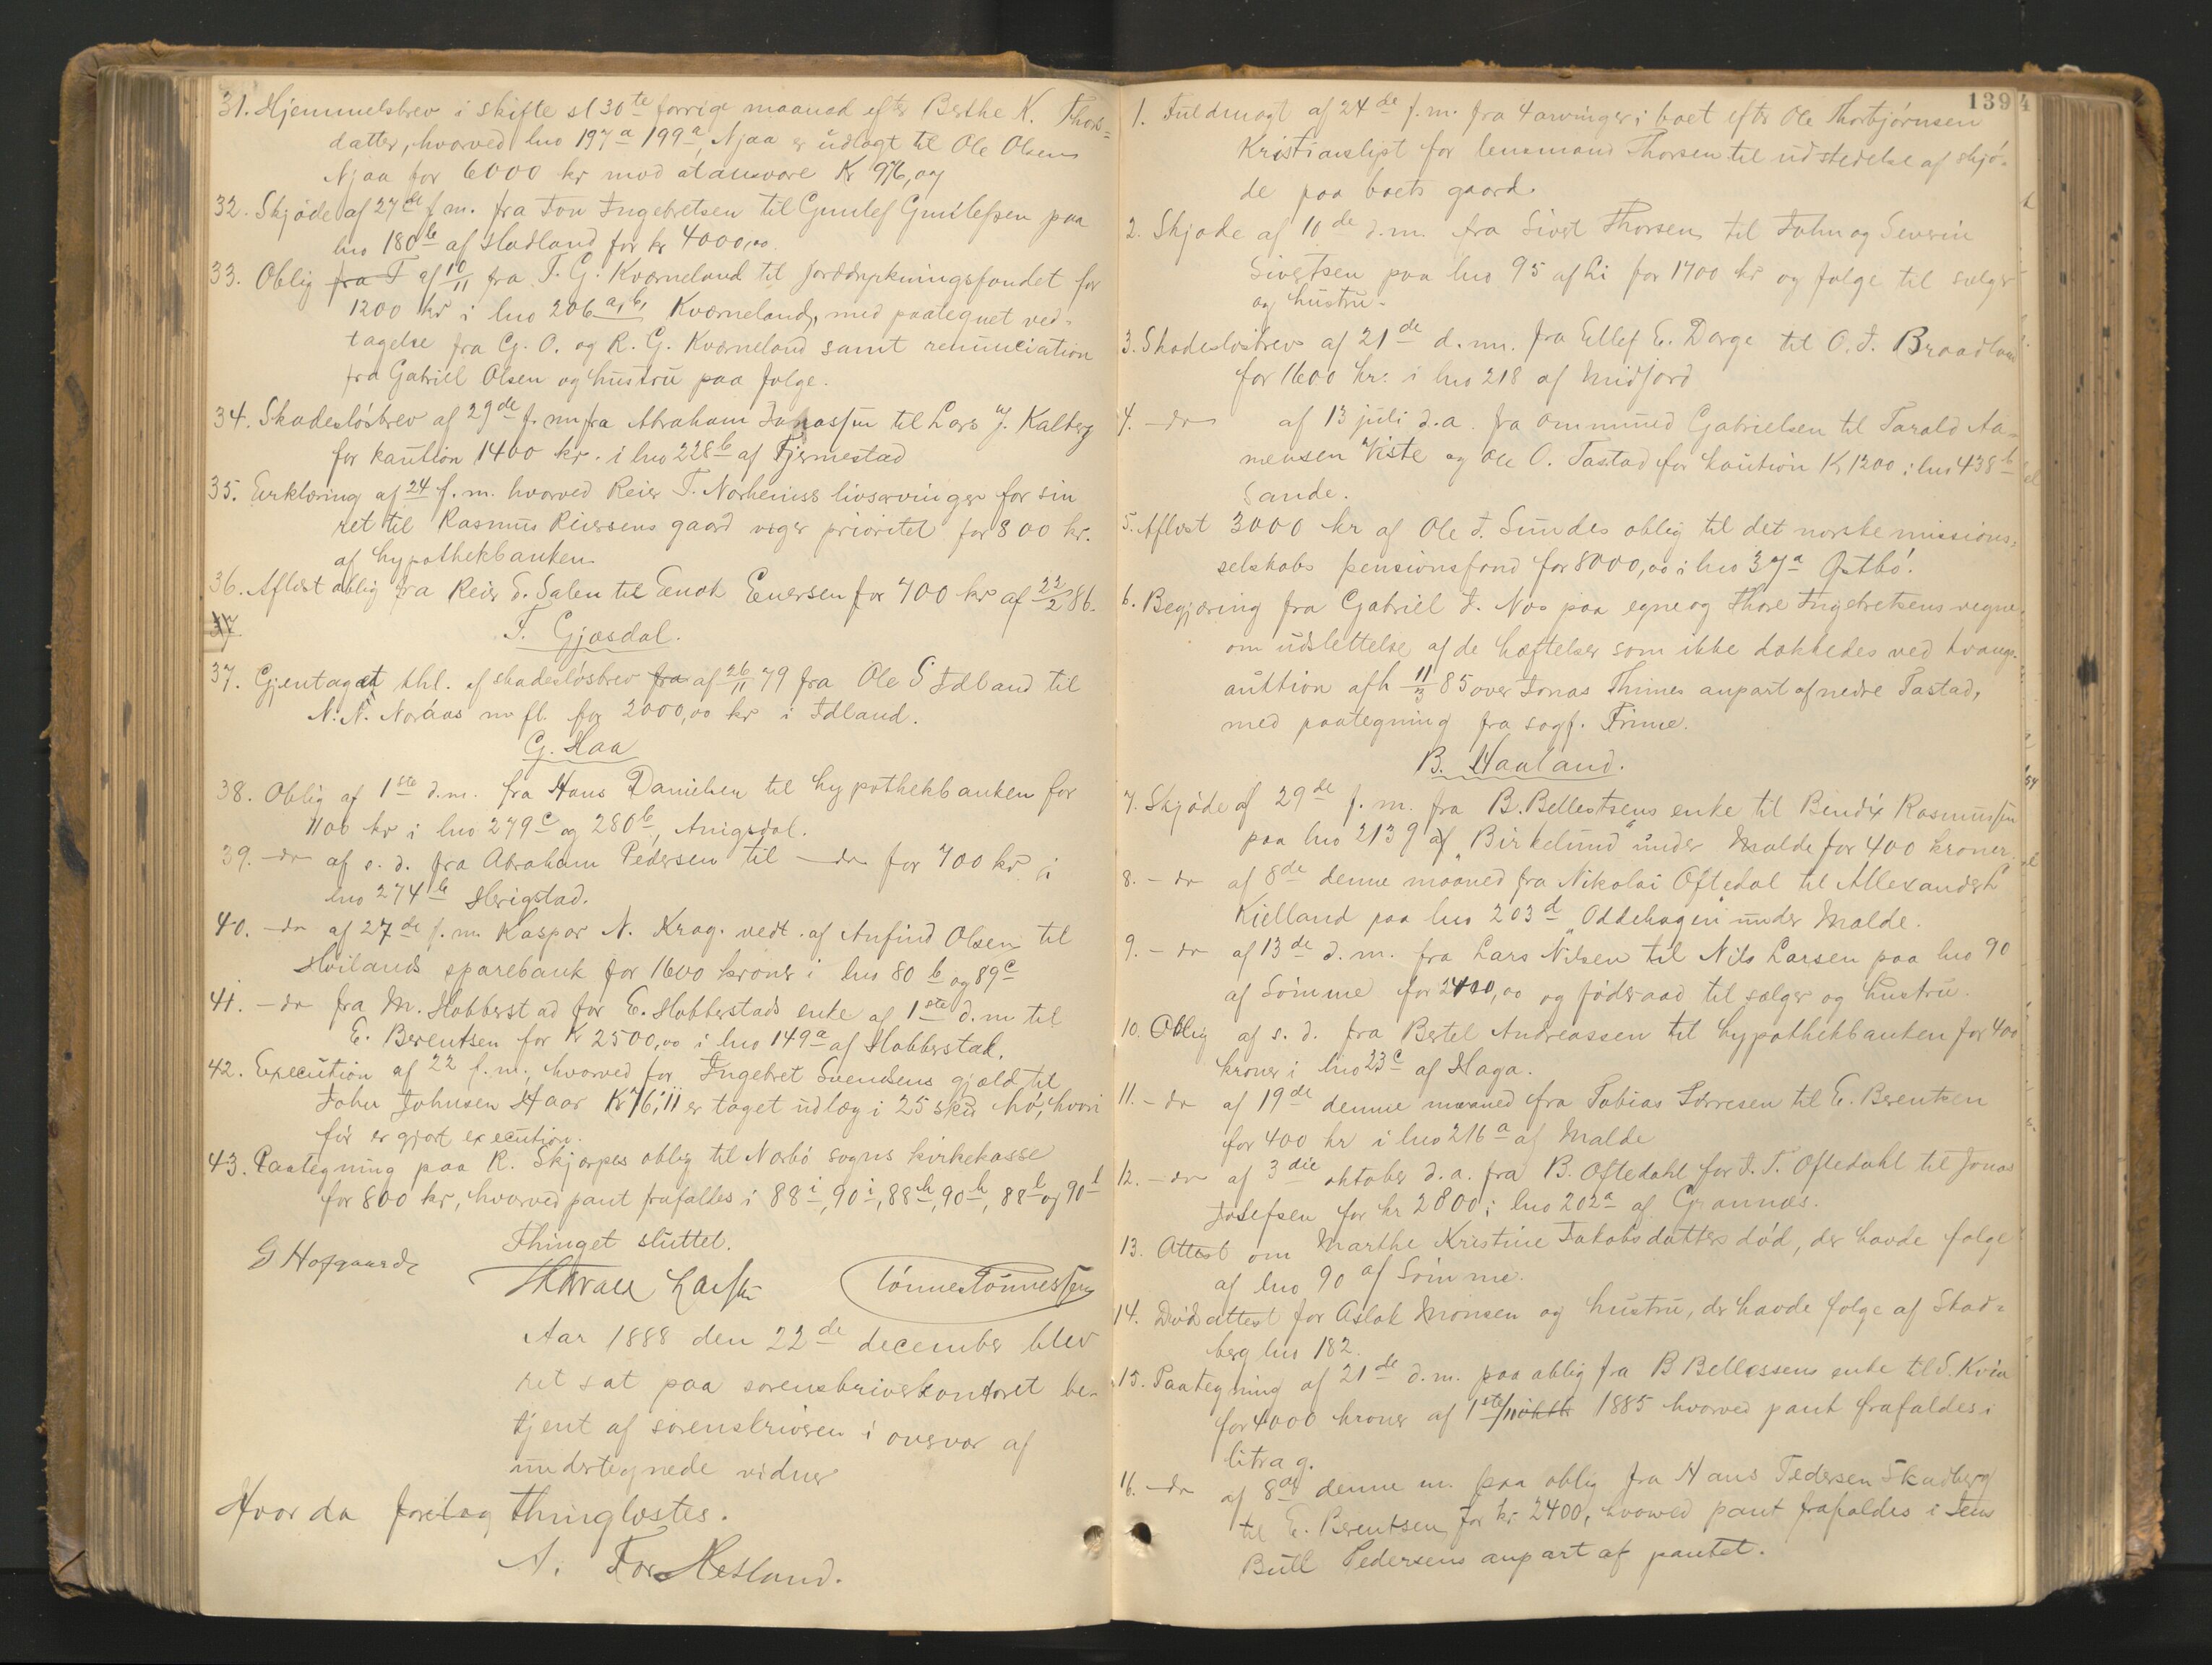 31. Hjemmelsbrev i skifte sl 30te forrige maaned efter Berthe K. Thors=
datter, hvorved lno 197a 199a, Njaa er udlagt til Ole Olsen
Njaa for 6000 kr mod at ansvare Kr 976,
32. Skjøde af 27de f.m. fra Jon Ingebretsen til Gunlef Gunlefsen paa
lno 180b af Hadland for kr 4000,00.
33. Oblig fra T af 10/11 fra T. G. Kværneland til Jorddyrkningsfondet for
1200 kr i lno 206a,b, Kværneland, med paategnet ved=
tagelse fra G. O. og R. G. Kværneland samt renunciation
fra Gabriel Olsen og hustru paa følge.
34. Skadesløsbrev af 29de f.m. fra Abraham Jonassen til Lars J. Kalberg
for kaution 1400 kr. i lno 228b af Fjermestad
35. Erklæring af 24 f.m. hvorved Reier T. Norheims livsarvinger for sin
ret til Rasmus Reiersens gaard viger prioritet for 800 kr.
af hypothekbanken
36. Aflæst oblig fra Reier T. Salen til Enok Enersen for 700 kr af 22/2 86.
37
F. Gjæsdal.
37. Gjentaget thl. af skadesløsbrev fra af 26/11 79 fra Ole S Idland til
N. N. Noraas m fl. for 2000,00 kr i Idland.
G. Haa
38. Oblig af 1ste d.m. fra Hans Danielsen til hypothekbanken for
1100 kr i lno 279c og 280b, Anigsdal.
39. - do af s. d. fra Abraham Pedersen til - do for 700 kr i
lno 274b Herigstad.
40. - do af 27de f.m. Kaspar N. Krag. vedt. af Anfind Olsen til
Høilands sparebank for 1600 kroner i lno 80 b og 89c
41. - do fra M. Hobberstad for E. Hobberstads enke af 1ste d.m til
E. Berentsen for Kr 2500,00 i lno 149a af Hobberstad.
42. Execution af 22 f.m., hvorved for Ingebret Svendsens gjæld til
John Johnsen Haar Kr 76,11 er taget udlæg i 25 skd hø, hvori
før er gjort execution.
43. Paategning paa R. Skjærpes oblig til Nærbø sogns kirkekasse
for 800 kr, hvorved pant frafaldes i 88i, 90i, 88h, 90h, 88l og 90l
Thinget sluttet.
G Hofgaard
Larsen
Tønnes Tønnessen
Aar 1888 den 22de december blev
ret sat paa sorenskriverkontoret be-
tjent af sorenskriveren i overvær af
undertegnede vidner
Hvor da foretog thinglæstes.
A. For Hetland.
139
1. Fuldmagt af 24de f.m. fra 4 arvinger i boet efter Ole Thorbjørnsen
Kristiansligt for lensmand Thorsen til udstedelse af skjø-
de paa boets gaard.
2. Skjøde af 10de d.m. fra Sivert Thorsen til John og Severin
Sivertsen paa lno 95 af Li for 1700 kr og følge til sælger
og hustru.
3. Skadesløsbrev af 21de d.m. fra Ellef E. Dorge til O. J. Braadland
for 1600 kr. i lno 218 af Midjord
4. - do af 13 juli d.a. fra Ommund Gabrielsen til Tarald Aa-
mensen Viste og Ole O. Tastad for kaution Kr 1200 i lno 438b
Sande.
5. Aflæst 3000 kr af Ole J. Sundes oblig til det norske missions=
selskabs pensionsfond for 8000,00 i lno 37a Østbø.
6. Begjæring fra Gabriel J. Noo paa egne og Thore Ingebretsens vegne
om udslettelse af de hæftelser som ikke dækkedes ved tvangs-
auktion afh 11/3 85 over Jonas Thimes anpart af nedre Tastad,
med paategning fra sagf. Finne.
B. Haaland.
7. Skjøde af 29de f.m. fra B. Bellestsens enke til Bendix Rasmussen
paa lno 213 g af "Birkelund" under Malde for 400 kroner.
8. - do af 8de denne maaned fra Nikolai Oftedal til Allexander L
Kielland paa lno 203d "Oddehagen" under Malde.
9. - do af 13de d.m. fra Lars Nilsen til Nils Larsen paa lno 90
af Sømme for 2400,00 og føderaad til sælger og hustru.
10. Oblig af s. d. fra Bertel Andreassen til hypothekbanken for 400
kroner i lno 23c af Haga.
11. - do af 19de denne maaned fra Tobias Tørresen til E. Berentsen
for 400 kr i lno 216a af Malde
12. - do af 3die oktober d.a. fra B. Oftedahl for J. T. Oftedahl til Jonas
Josefsen for kr 2800 i lno 202a af Grannæs.
13. Attest om Marthe Kristine Jakobsdatters død, der havde følge
af lno 90 af Sømme.
14. Dødsattest for Aslak Monsen og hustru, der havde følge af Skad=
berg lno 182.
15. Paategning af 21de d.m. paa oblig fra B Bellessens enke til S. Kvia
for 4000 kroner af 1ste/10 oktb 1885 hvorved pant frafaldes i
litra g.
16. - do af 8de denne m. paa oblig fra Hans Pedersen Skadberg
til E. Berentsen for kr 2400, hvorved pant frafaldes i Jens
Bull Pedersens anpart af pantet.